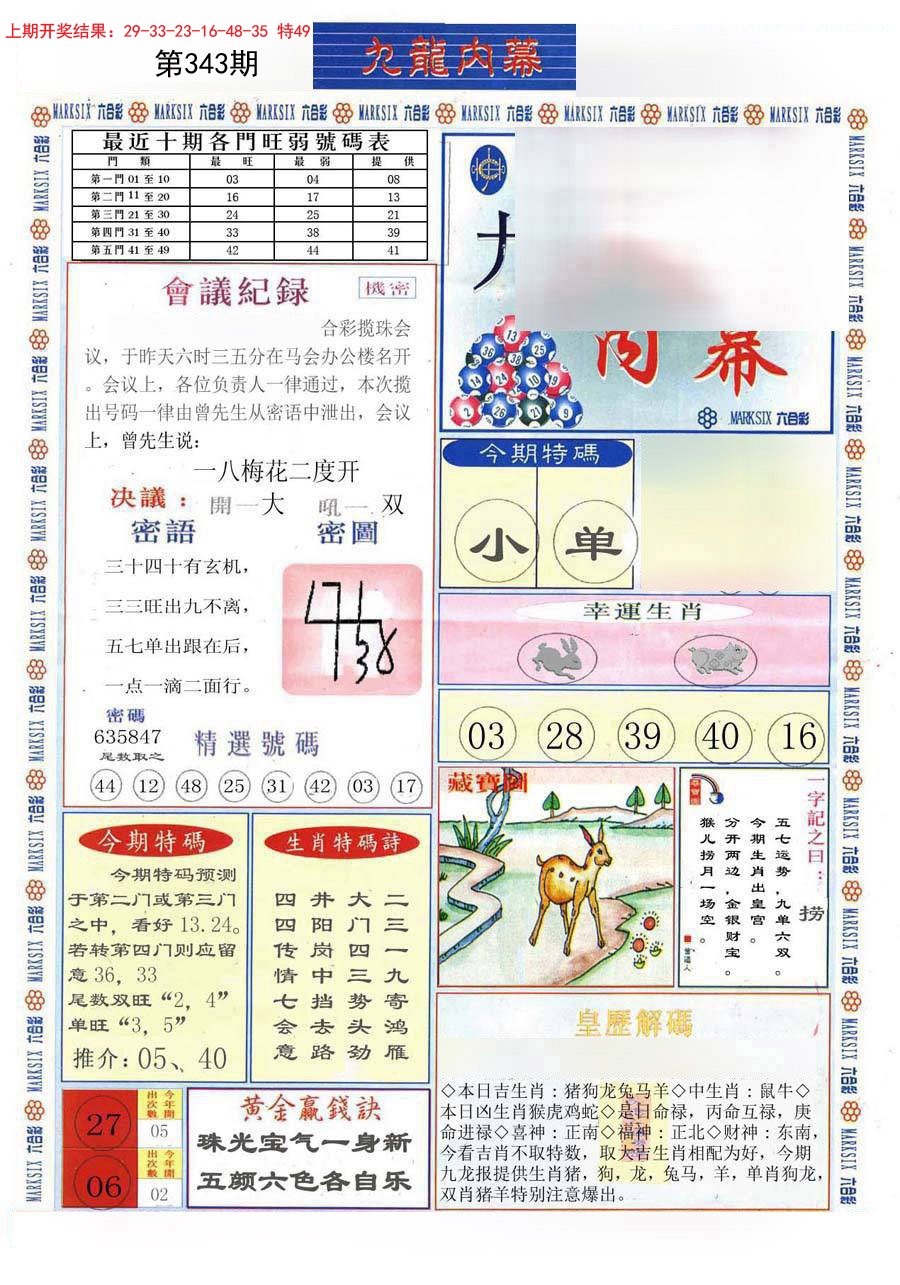 上期开奖结果：29-33-23-16-48-35 特49
第343期
九龍内幕
MARKSIX 六合彩
最近十期各門旺弱號碼表
門 類 最 旺 最 弱 提 供
第一門 01 至 10 03 04 08
第二門 11 至 20 16 17 13
第三門 21 至 30 24 25 21
第四門 31 至 40 33 38 39
第五門 41 至 49 42 44 41
會議紀録
機密
合彩揽珠会
议，于昨天六时三五分在马会办公楼名开
。会议上，各位负责人一律通过，本次揽
出号码一律由曾先生从密语中泄出，会议
上，曾先生说：
一八梅花二度开
决議：開一大 吼一双
密語
密圖
三十四十有玄机，
三三旺出九不离，
五七单出跟在后，
一点一滴二面行。
密碼
635847
尾数取之
精選號碼
44 12 48 25 31 42 03 17
内幕
13
36 38 25
12 24 10 19
2 26 21 9
MARKSIX 六合彩
今期特碼
小 单
幸運生肖
03 28 39 40 16
藏寶圖
一字記之曰：
捞
五七运势，九单六双。
今期生肖出皇宫。
分开两边，金银财宝。
猴儿捞月一场空。
今期特碼
今期特码预测
于第二门或第三门
之中，看好 13.24。
若转第四门则应留
意 36，33
尾数双旺“2，4”
单旺“3，5”
推介：05、40
生肖特碼詩
二三一九寄鸿雁
大门四三势头劲
井阳岗中挡去路
四四传情七会意
27
今年開出次數
05
06
今年開出次數
02
黄金赢錢訣
珠光宝气一身新
五颜六色各自乐
皇歷解碼
◇本日吉生肖：猪狗龙兔马羊◇中生肖：鼠牛◇
本日凶生肖猴虎鸡蛇◇是日命禄，丙命互禄，庚
命进禄◇喜神：正南◇福神：正北◇财神：东南，
今看吉肖不取特数，取大吉生肖相配为好，今期
九龙报提供生肖猪，狗，龙，兔马，羊，单肖狗龙，
双肖猪羊特别注意爆出。